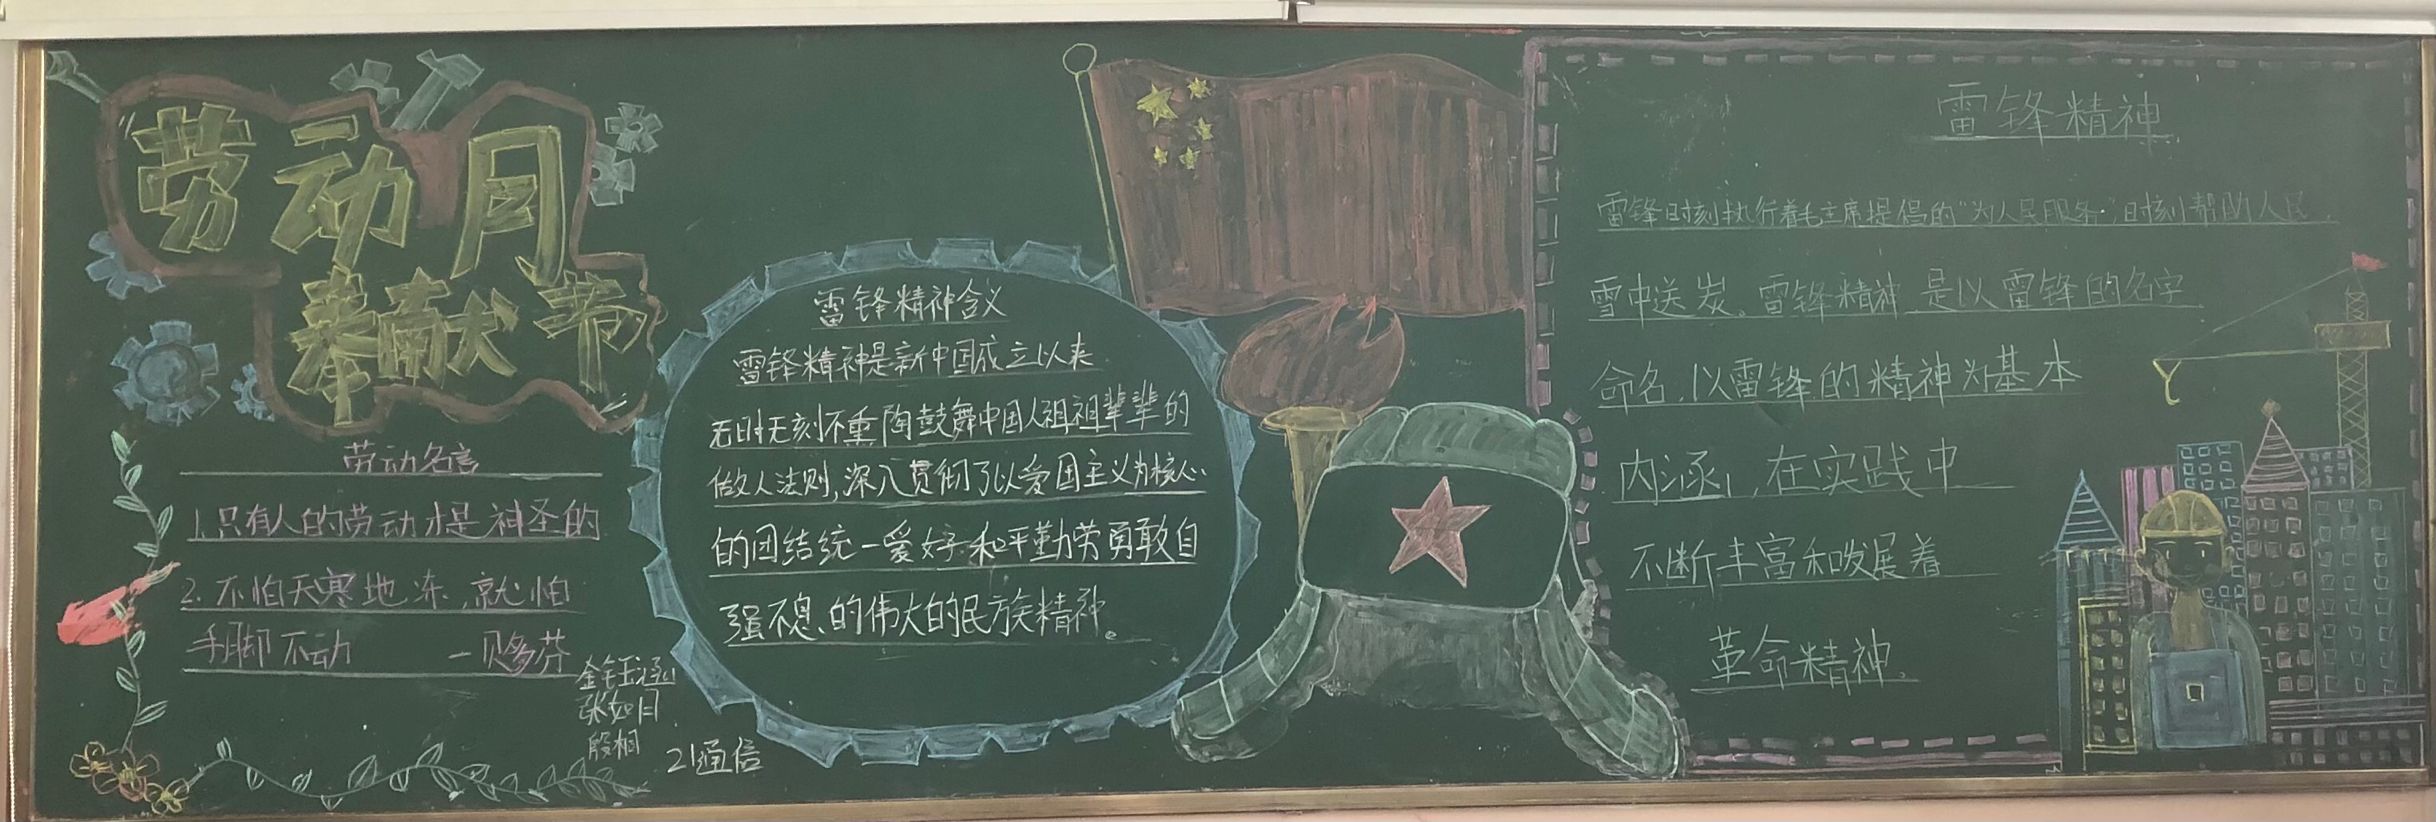 劳动月
奉献节
劳动名言
1.只有人的劳动才是神圣的
2.不怕天寒地冻,就怕
手脚不动 一贝多芬
张如月
殷桐
21通信
雷锋精神含义
雷锋精神是新中国成立以来
无时无刻不熏陶鼓舞中国人祖祖辈辈的
做人法则,深入贯彻了以爱国主义为核心
的团结统一爱好和平勤劳勇敢自
强不息、的伟大的民族精神。
雷锋精神
雷锋时刻执行着毛主席提倡的“为人民服务”,时刻帮助人民
雪中送炭。雷锋精神是以雷锋的名字
命名,以雷锋的精神为基本
内涵,在实践中
不断丰富和发展着
革命精神。